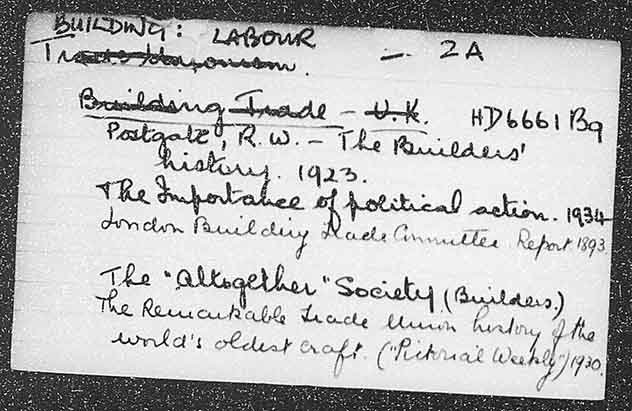 BUILDING: LABOUR — 2A
Trade Unionism.
Building Trade – U.K. HD6661 B9
Postgate, R.W. – The Builders'
history. 1923.
The Importance of political action. 1934
London Building Trade Committee Report 1893.
The "Altogether" Society (Builders.)
The Remarkable Trade Union history of the
world's oldest craft. ("Pictorial Weekly") 1930.